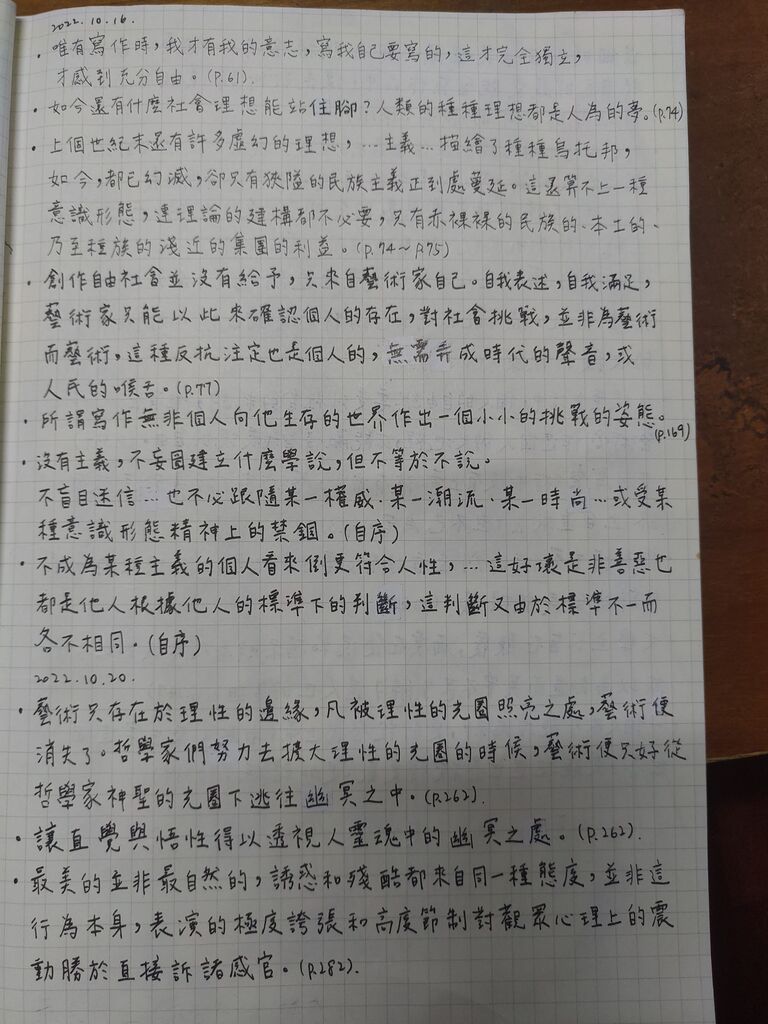 2022.10.16.
· 唯有寫作時，我才有我的意志，寫我自己要寫的，這才完全獨立，
才感到充分自由。(p.61).
· 如今還有什麼社會理想能站住腳？人類的種種理想都是人為的夢。(p.74)
· 上個世紀末還有許多虛幻的理想，…主義…描繪了種種烏托邦，
如今，都已幻滅，卻只有狹隘的民族主義正到處蔓延。這還算不上一種
意識形態，連理論的建構都不必要，只有赤裸裸的民族的、本土的、
乃至種族的淺近的集團的利益。(p.74~p.75)
· 創作自由社會並沒有給予，只來自藝術家自己。自我表述，自我滿足，
藝術家只能以此來確認個人的存在，對社會挑戰，並非為藝術
而藝術，這種反抗注定也是個人的，無需弄成時代的聲音，或
人民的喉舌。(p.77)
· 所謂寫作無非個人向他生存的世界作出一個小小的挑戰的姿態。
(p.169)
· 沒有主義，不妄圖建立什麼學說，但不等於不說。
不盲目迷信…也不必跟隨某一權威、某一潮流、某一時尚…或受某
種意識形態精神上的禁錮。(自序)
· 不成為某種主義的個人看來倒更符合人性，…這好壞是非善惡也
都是他人根據他人的標準下的判斷，這判斷又由於標準不一而
各不相同。(自序)
2022.10.20.
· 藝術只存在於理性的邊緣，凡被理性的光圈照亮之處，藝術便
消失了。哲學家們努力去擴大理性的光圈的時候，藝術便只好從
哲學家神聖的光圈下逃往幽冥之中。(p.262).
· 讓直覺與悟性得以透視人靈魂中的幽冥之處。(p.262).
· 最美的並非最自然的，誘惑和殘酷都來自同一種態度，並非這
行為本身，表演的極度誇張和高度節制對觀眾心理上的震
動勝於直接訴諸感官。(p.282).